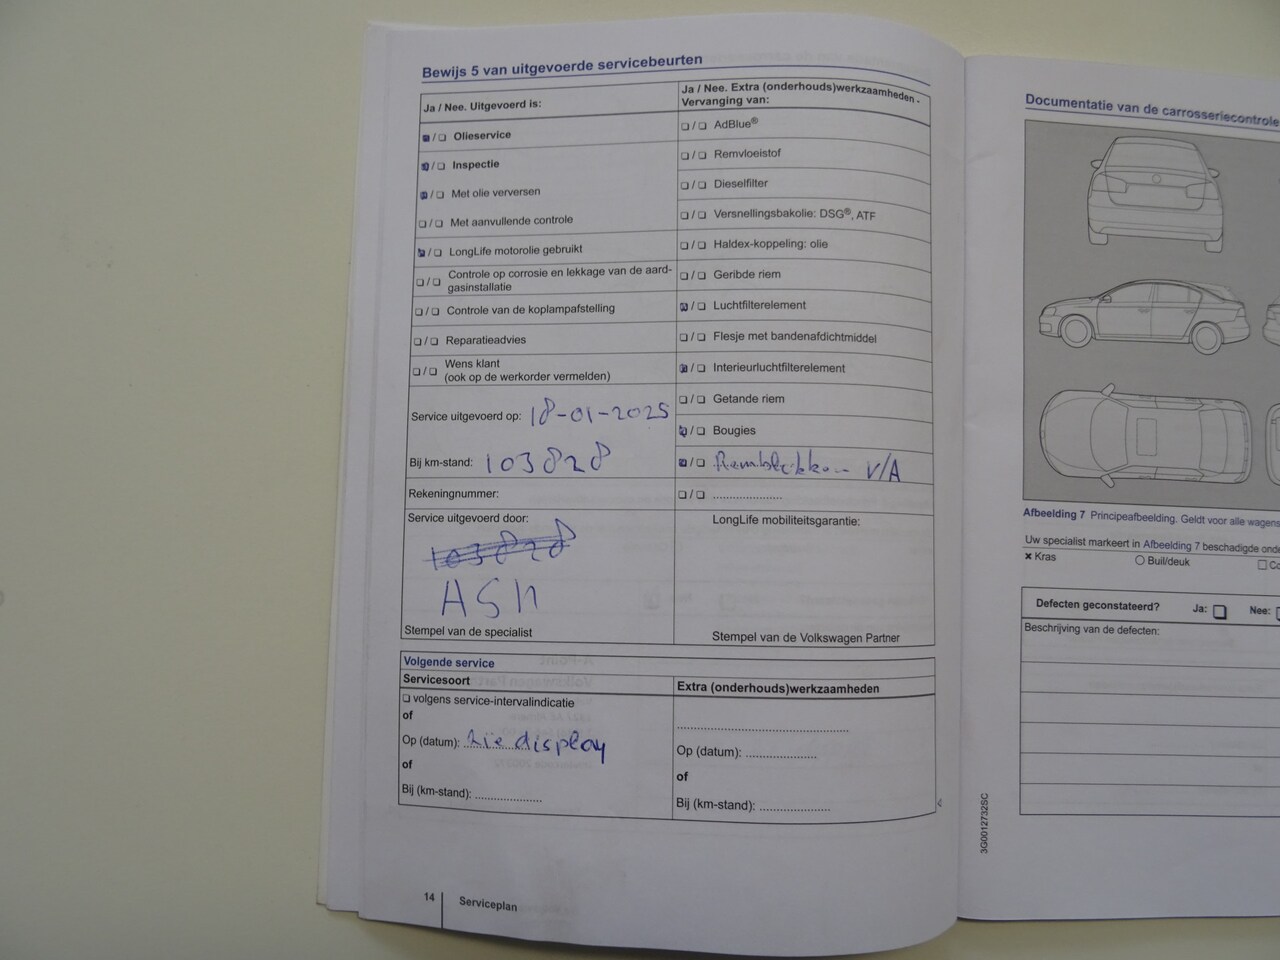 Bewijs 5 van uitgevoerde servicebeurten
Ja / Nee. Uitgevoerd is:
❏ / ❏ Olieservice
❏ / ❏ Inspectie
❏ / ❏ Met olie verversen
❏ / ❏ Met aanvullende controle
❏ / ❏ LongLife motorolie gebruikt
❏ / ❏ Controle op corrosie en lekkage van de aard-
gasinstallatie
❏ / ❏ Controle van de koplampafstelling
❏ / ❏ Reparatieadvies
❏ / ❏ Wens klant
(ook op de werkorder vermelden)
Service uitgevoerd op: 18-01-2025
Bij km-stand: 103828
Rekeningnummer:
Service uitgevoerd door:
103828
ASH
Stempel van de specialist
Ja / Nee. Extra (onderhouds)werkzaamheden -
Vervanging van:
❏ / ❏ AdBlue®
❏ / ❏ Remvloeistof
❏ / ❏ Dieselfilter
❏ / ❏ Versnellingsbakolie: DSG®, ATF
❏ / ❏ Haldex-koppeling: olie
❏ / ❏ Geribde riem
❏ / ❏ Luchtfilterelement
❏ / ❏ Flesje met bandenafdichtmiddel
❏ / ❏ Interieurluchtfilterelement
❏ / ❏ Getande riem
❏ / ❏ Bougies
❏ / ❏ Remblokken V/A
❏ / ❏ .....................
LongLife mobiliteitsgarantie:
Stempel van de Volkswagen Partner
Volgende service
Servicesoort
❏ volgens service-intervalindicatie
of
Op (datum): zie display
of
Bij (km-stand): ....................
Extra (onderhouds)werkzaamheden
Op (datum): .....................
of
Bij (km-stand): .....................
14 Serviceplan
Documentatie van de carrosseriecontrole
Afbeelding 7 Principeafbeelding. Geldt voor alle wagens
Uw specialist markeert in Afbeelding 7 beschadigde
✖ Kras
○ Buil/deuk
Defecten geconstateerd? Ja: ❏ Nee:
Beschrijving van de defecten:
3G0012732SC